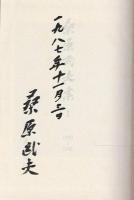 一九八七年十一月三日
桑原武夫